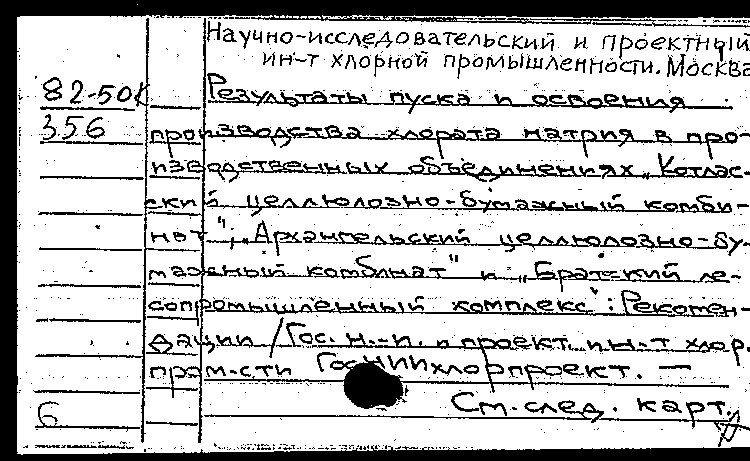 Научно-исследовательский и проектный
ин-т хлорной промышленности. Москва
82-50К
Результаты пуска и освоения
356
производства хлората натрия в про-
изводственных объединениях „Котлас-
ский целлюлозно-бумажный комби-
нат"; „Архангельский целлюлозно-бу-
мажный комбинат" и „Братский ле-
сопромышленный комплекс": Рекомен-
дации / Гос. н.-и. и проект. ин-т хлор.
пром-сти ГосНИИхлорпроект. —
6
См. след. карт.